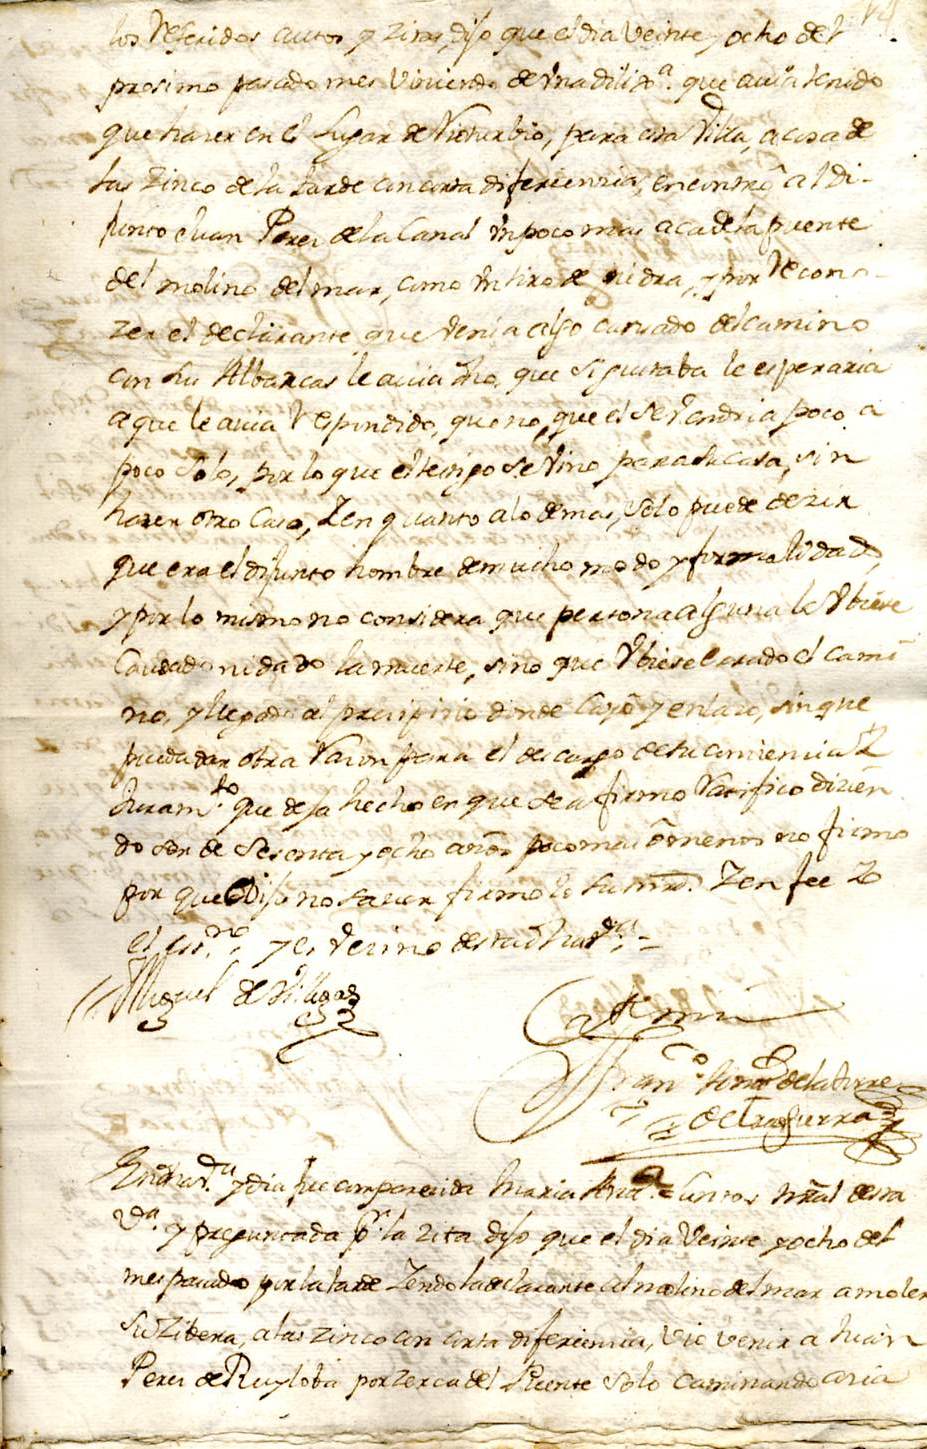 los Referidos autos, y zitas, dijo que el dia veinte y ocho del
prosimo pasado mes viniendo de vna dilix.ª que auia tenido
que hazer en el Lugar de para esta Villa, a cosa de
las zinco de la tarde con corta diferienzia, encontro al di-
funto Juan Perez de la Canal vn poco mas aca de la puente
del molino del mar, como vn tiro de piedra, y por Recono-
zer el declarante que venia algo cansado del camino
con sus Albarcas le auia dho, que si gustaba le esperaria
a que le auia Respondido, que no, que el se vendria poco a
poco solo, por lo que el testigo se vino para su casa, sin
hazer otro caso, Y en quanto a lo demas, solo puede dezir
que era el difunto hombre de mucho modo y formalidad,
y por lo mismo no considera que persona alguna le vbiese
Causado ni dado la muerte, sino que vbiese herado el cami
no, y llegado al prezipizio donde Cayo y en lazo, sin que
pueda dar otra razon para el descargo de su conzienzia
Juram.to que deja hecho en que se afirmo Ratifico dizien
do ser de sesenta y ocho años poco mas o menos no firmo
por que Dijo no sauer firmolo su mrd. Y en fee Yo
el ess.no y es vezino desta dha v.ª =
Miguel de
Ante mi
Fran.co de la Torre
de Trasierra
En dha v.ª y dia fue comparezida Maria Ant.ª Santos nral desta
v.ª y preguntada p.r la zita dijo que el dia veinte y ocho del
mes pasado por la tarde Yendo la declarante al molino del mar a moler
su zibera, a las zinco con corta diferienzia, vio venir a Juan
Perez de Ruyloba por zerca del Puente solo caminando azia